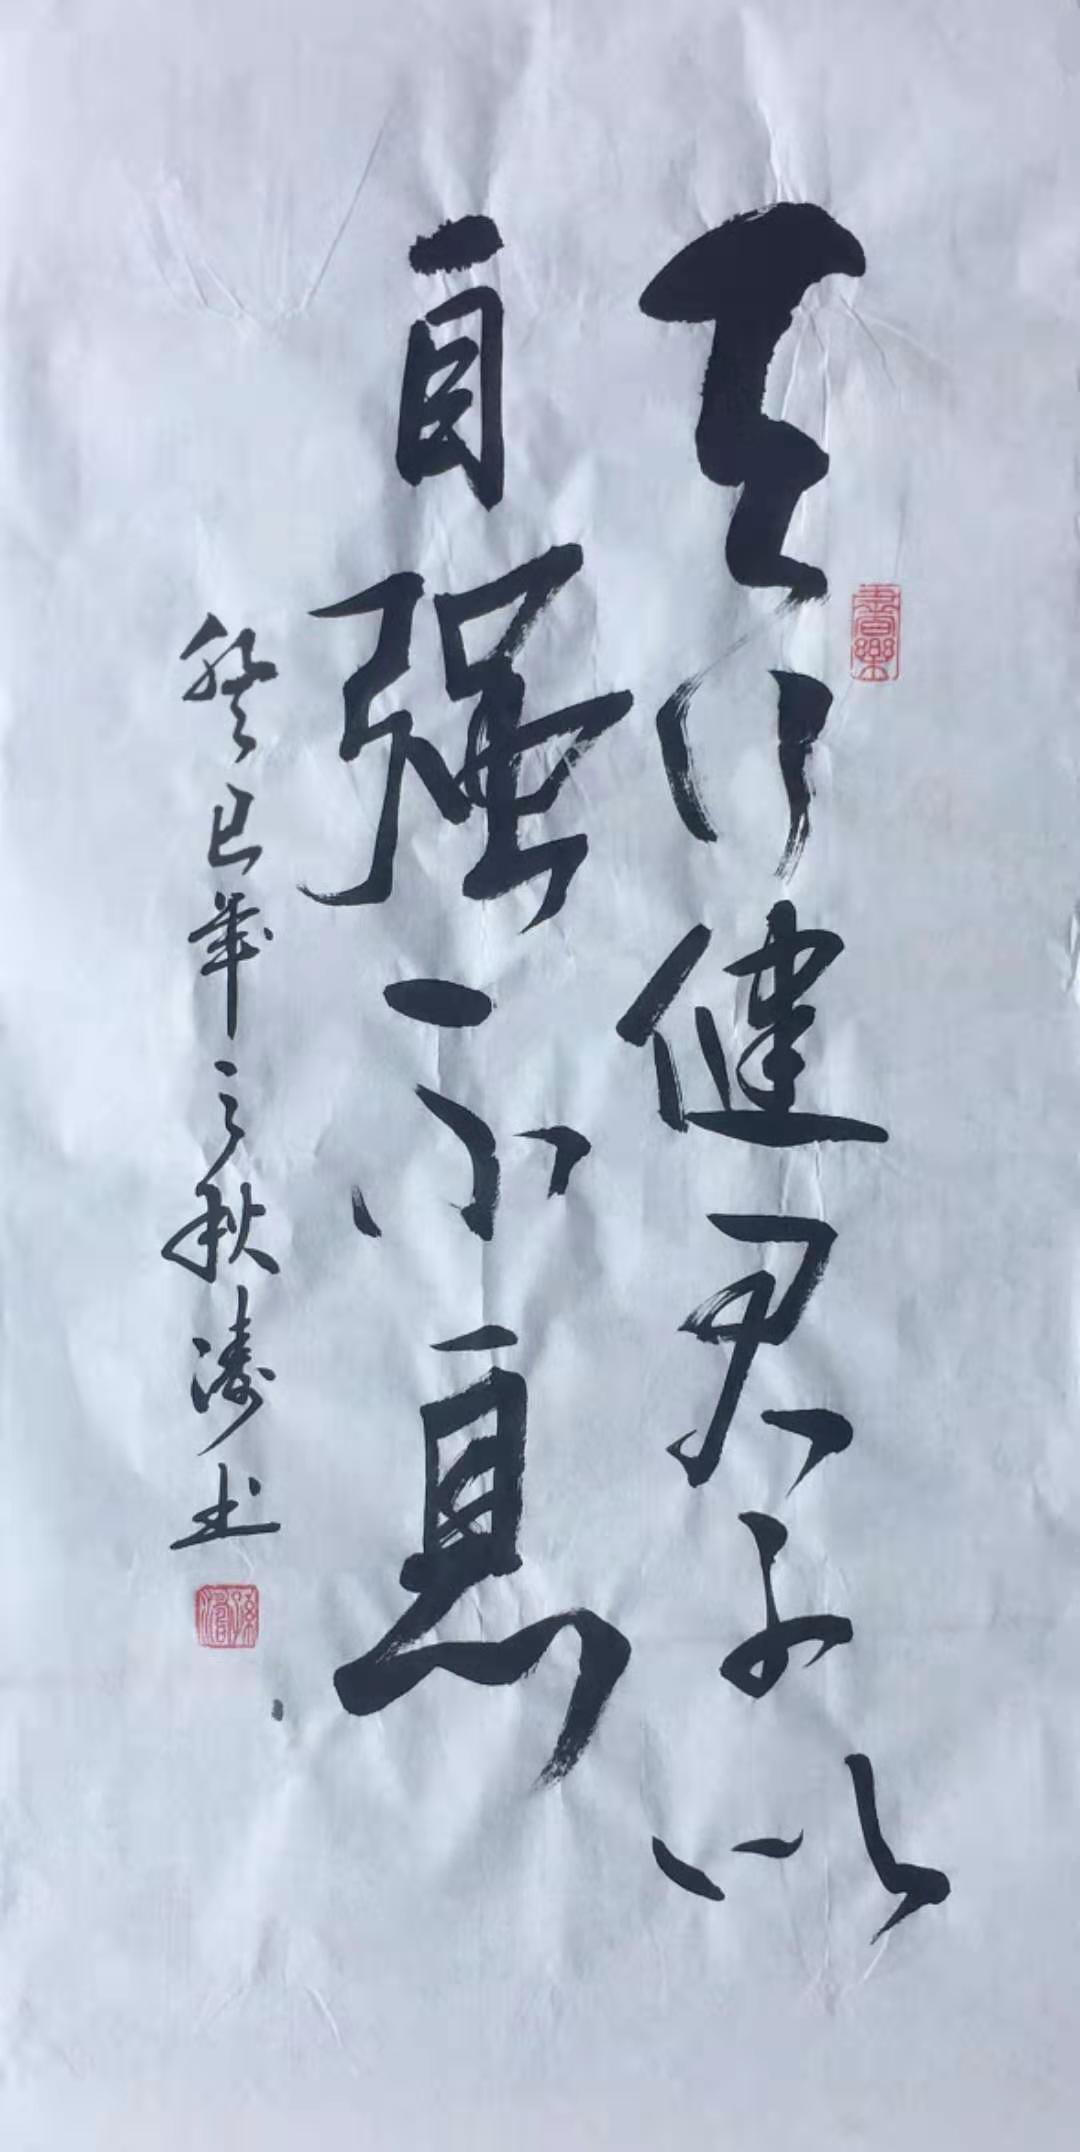 天行健君子以
自强不息
癸巳年之秋涛书